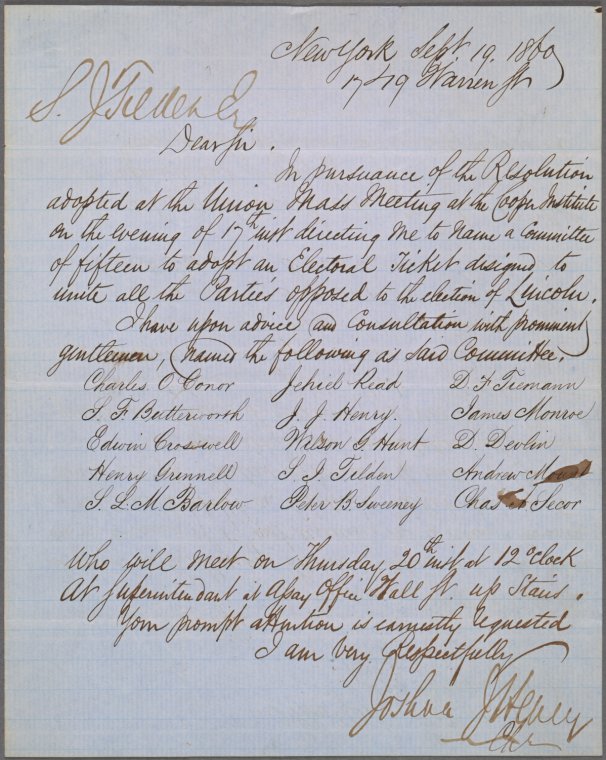 New York Sept. 19. 1860
17 & 19 Warren St
S. J. Tilden Esq
Dear Sir.
In pursuance of the Resolution
adopted at the Union Mass Meeting at the Coopr Institute
on the evening of 17th inst directing me to name a Committee
of fifteen to adopt an Electoral Ticket designed to
unite all the Parties opposed to the election of Lincoln.
I have upon advice and Consultation with prominent
gentlemen, named the following as said Committee.
Charles O'Conor Jehiel Read D. F. Tiemann
S. F. Butterworth J. J. Henry. James Monroe
Edwin Croswell Wilson G. Hunt D. Devlin
Henry Grinnell S. J. Tilden Andrew Mount
S. L. M. Barlow Peter B. Sweeney Chas Secor
Who will meet on Thursday 20th inst at 12 oclock
At Superintendant at Assay Office Wall St. up Stairs.
Your prompt attention is earnestly requested
I am Very Respectfully
Joshua J Henry
Chn